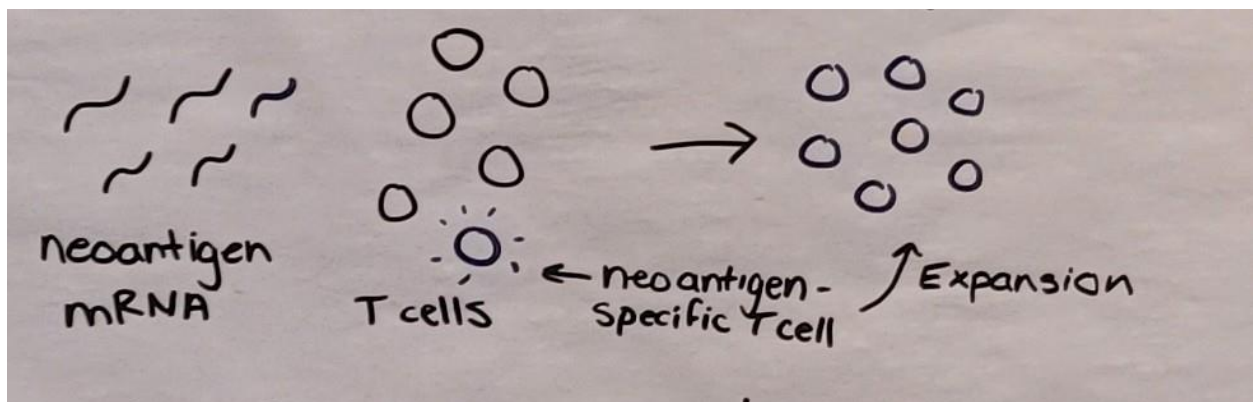 neoantigen
mRNA
T cells
neoantigen-
specific T cell
Expansion